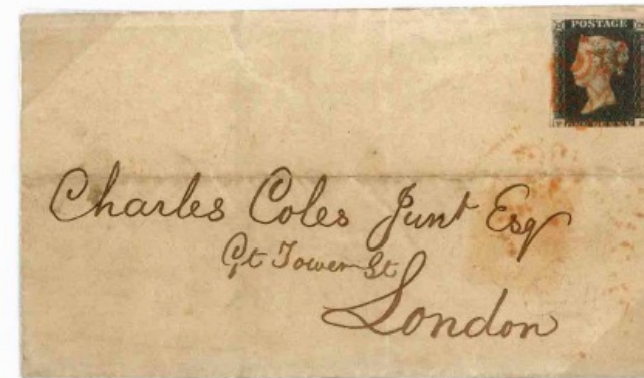 POSTAGE
ONE PENNY
Charles Coles Junr Esq
Gt Tower St
London